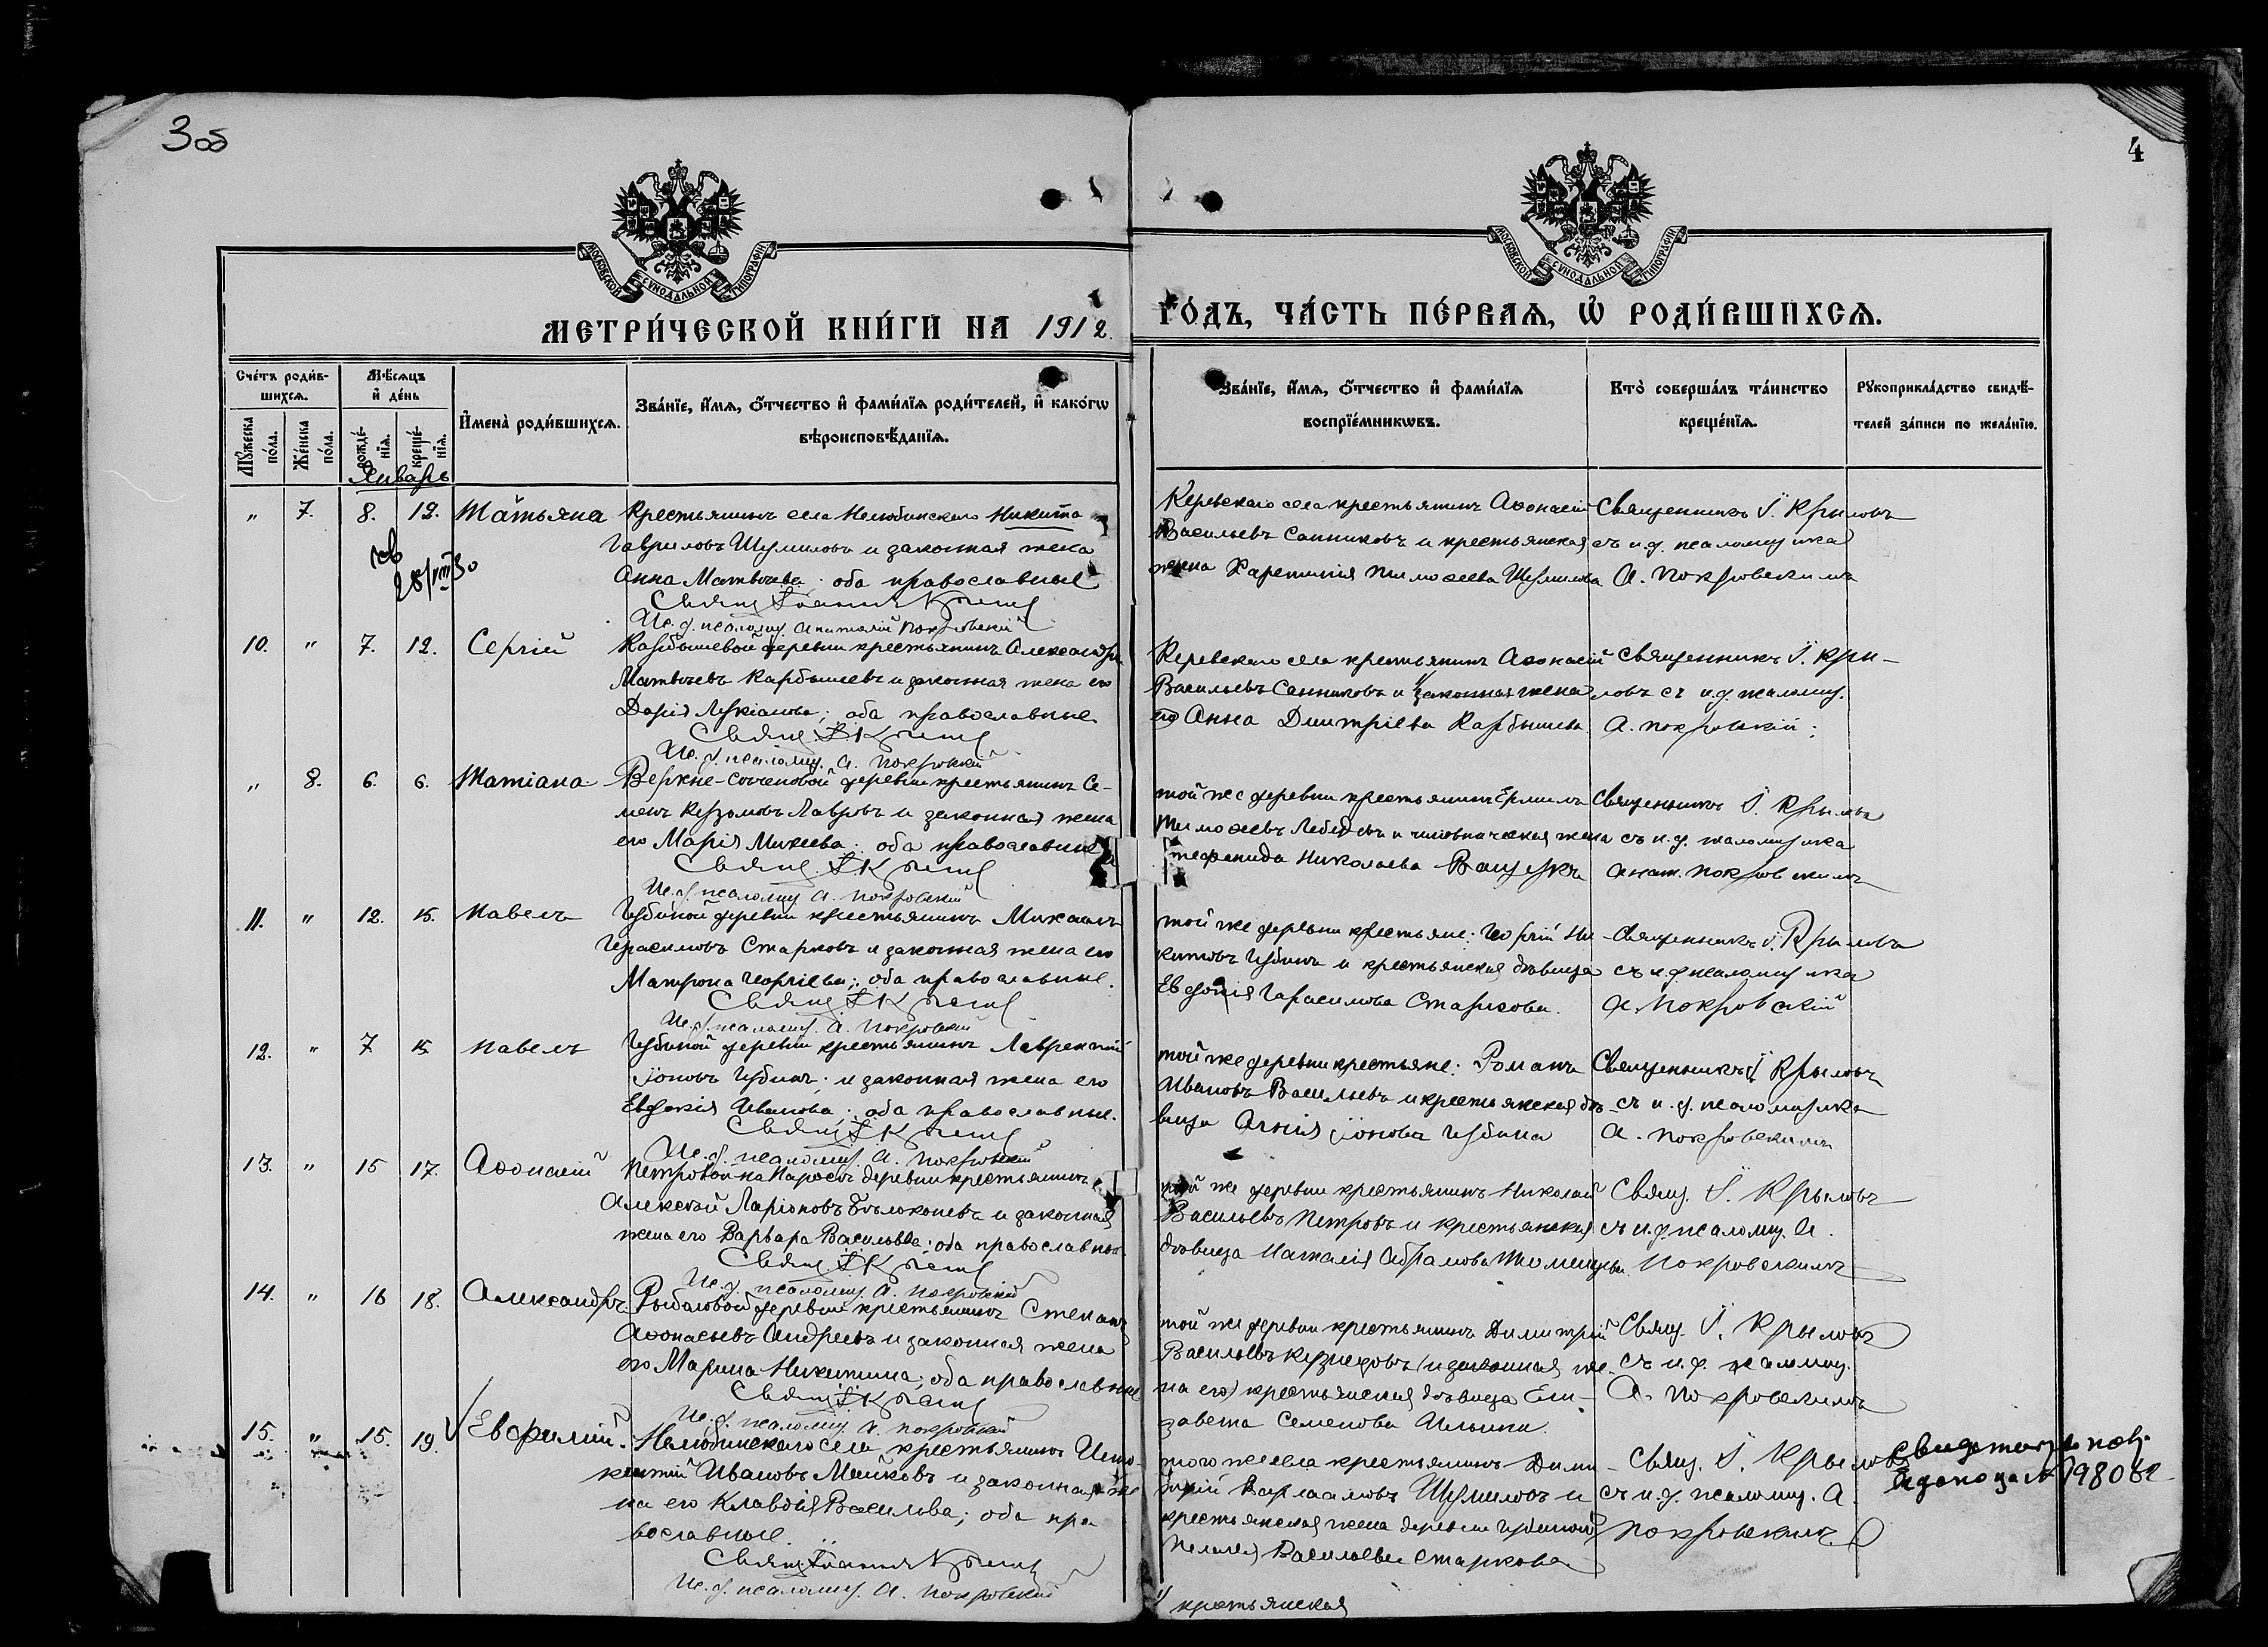 3 об
4
МОСКОВСКОЙ СѴНОДАЛЬНОЙ ТИПОГРАФІИ
МОСКОВСКОЙ СѴНОДАЛЬНОЙ ТИПОГРАФІИ
МЕТРИ́ЧЕСКОЙ КНИ́ГИ НА 1912
ГО́ДЪ, ЧА́СТЬ ПЕ́РВАѦ, Ѡ҆ РОДИ́ВШИХСѦ.
Сче́тъ роди́в-
шихсѧ.
Мꙋ́жеска по́ла.
Же́нска по́ла.
Мѣ́сѧцъ
и҆ де́нь
рожде́-нїѧ.
креще́-нїѧ.
И҆мена̀ роди́вшихсѧ.
Зва́нїе, и҆́мѧ, ѻ҆́тчество и҆ фами́лїѧ роди́телей, и҆ како́гѡ
вѣроисповѣ́данїѧ.
Зва́нїе, и҆́мѧ, ѻ҆́тчество и҆ фами́лїѧ
воспрїе́мникѡвъ.
Кто̀ соверша́лъ та́инство
креще́нїѧ.
Рꙋкоприкла́дство свидѣ́-
телей за́писи по жела́нїю.
Январь
" 7. 8. 12. Татьяна
Крестьянинъ села Нелюбинскаго Никита
Гавриловъ Шумиловъ и законная жена
Анна Матвѣева; оба православные
Свящ. Іоаннъ Крылов
Ис. д. псаломщ. Анатолій Покровскій
28/VIII 30
Керевскаго села крестьянинъ Аѳонасій
Васильевъ Санниковъ и крестьянская
жена Харетинія Тимоѳеева Шумилова
Священникъ І. Крыловъ
съ и.д. псаломщика
А. Покровскимъ
10. " 7. 12. Сергій
Карбышевой деревни крестьянинъ Александръ
Матвѣевъ Карбышевъ и законная жена его
Дарія Лукіанова; оба православные
Свящ. І. Крылов
Ис. д. псаломщ. А. Покровскій
Керевскаго села крестьянинъ Аѳонасій
Васильевъ Санниковъ и законная жена
его Анна Дмитріева Карбышева
Священникъ І. Кры-
ловъ съ и.д. псаломщ.
А. Покровскій;
" 8. 6. 6. Татіана
Верхне-Сеченовой деревни крестьянинъ Се-
менъ Кузьмовъ Лавровъ и законная жена
его Марія Михеева; оба православные
Свящ. І. Крылов
Ис. д. псаломщ. А. Покровскій
той же деревни крестьянинъ Ермилъ
Тимоѳеевъ Лебедевъ и чиновническая жена
Николаева Ващукъ
Священникъ І. Крыловъ
съ и.д. псаломщика
Анат. Покровскимъ
11. " 12. 15. Павелъ
Губиной деревни крестьянинъ Михаилъ
Герасимовъ Старковъ и законная жена его
Матрона Георгіева; оба православные.
Свящ. І. Крылов
Ис. д. псаломщ. А. Покровскій
той же деревни крестьяне: Георгій Ни-
китовъ Губинъ и крестьянская дѣвица
Евдокія Герасимова Старкова.
Священникъ І. Крыловъ
съ и.д. псаломщика
А. Покровскій
12. " 7. 15. Павелъ
Губиной деревни крестьянинъ Лаврентій
Іоновъ Губинъ; и законная жена его
Евдокія Иванова; оба православные.
Свящ. І. Крылов
Ис. д. псаломщ. А. Покровскій
той же деревни крестьяне: Романъ
Ивановъ Васильевъ и крестьянская дѣ-
вица Агнія Іонова Губина
Священникъ І. Крыловъ
съ и.д. псаломщика
А. Покровскимъ
13. " 15 17. Аѳонасій
Петровой на Поросѣ деревни крестьянинъ
Алексѣй Ларіоновъ Бѣлоконевъ и законная
жена его Варвара Васильева; оба православные.
Свящ. І. Крылов
Ис. д. псаломщ. А. Покровскій
той же деревни крестьянинъ Николай
Васильевъ Петровъ и крестьянская
дѣвица Наталія Абрамова Тюменцева.
Свящ. І. Крыловъ
съ и.д. псаломщ. А.
Покровскимъ
14. " 16 18. Александръ
Рыбаловой деревни крестьянинъ Степанъ
Аѳонасьевъ Андреевъ и законная жена
его Марина Никитина; оба православные
Свящ. І. Крылов
Ис. д. псаломщ. А. Покровскій
той же деревни крестьянинъ Димитрій
Васильевъ Кузнецовъ (и законная же-
на его) крестьянская дѣвица Ели-
завета Семенова Ильина.
Свящ. І. Крыловъ
съ и.д. псаломщ.
А. Покровскимъ
15. " 15. 19. Евфимій.
Нелюбинскаго села крестьянинъ Инно-
кентій Ивановъ Мейковъ и законная же-
на его Клавдія Васильева; оба пра-
вославные.
Свящ. Іоаннъ Крылов
Ис. д. псаломщ. А. Покровскій
того же села крестьянинъ Дими-
трій Варлаамовъ Шумиловъ и
крестьянская жена деревни Губиной
Пелагея Васильева Старкова.
Свящ. І. Крыловъ
съ и.д. псаломщ. А.
Покровскимъ
1) крестьянская